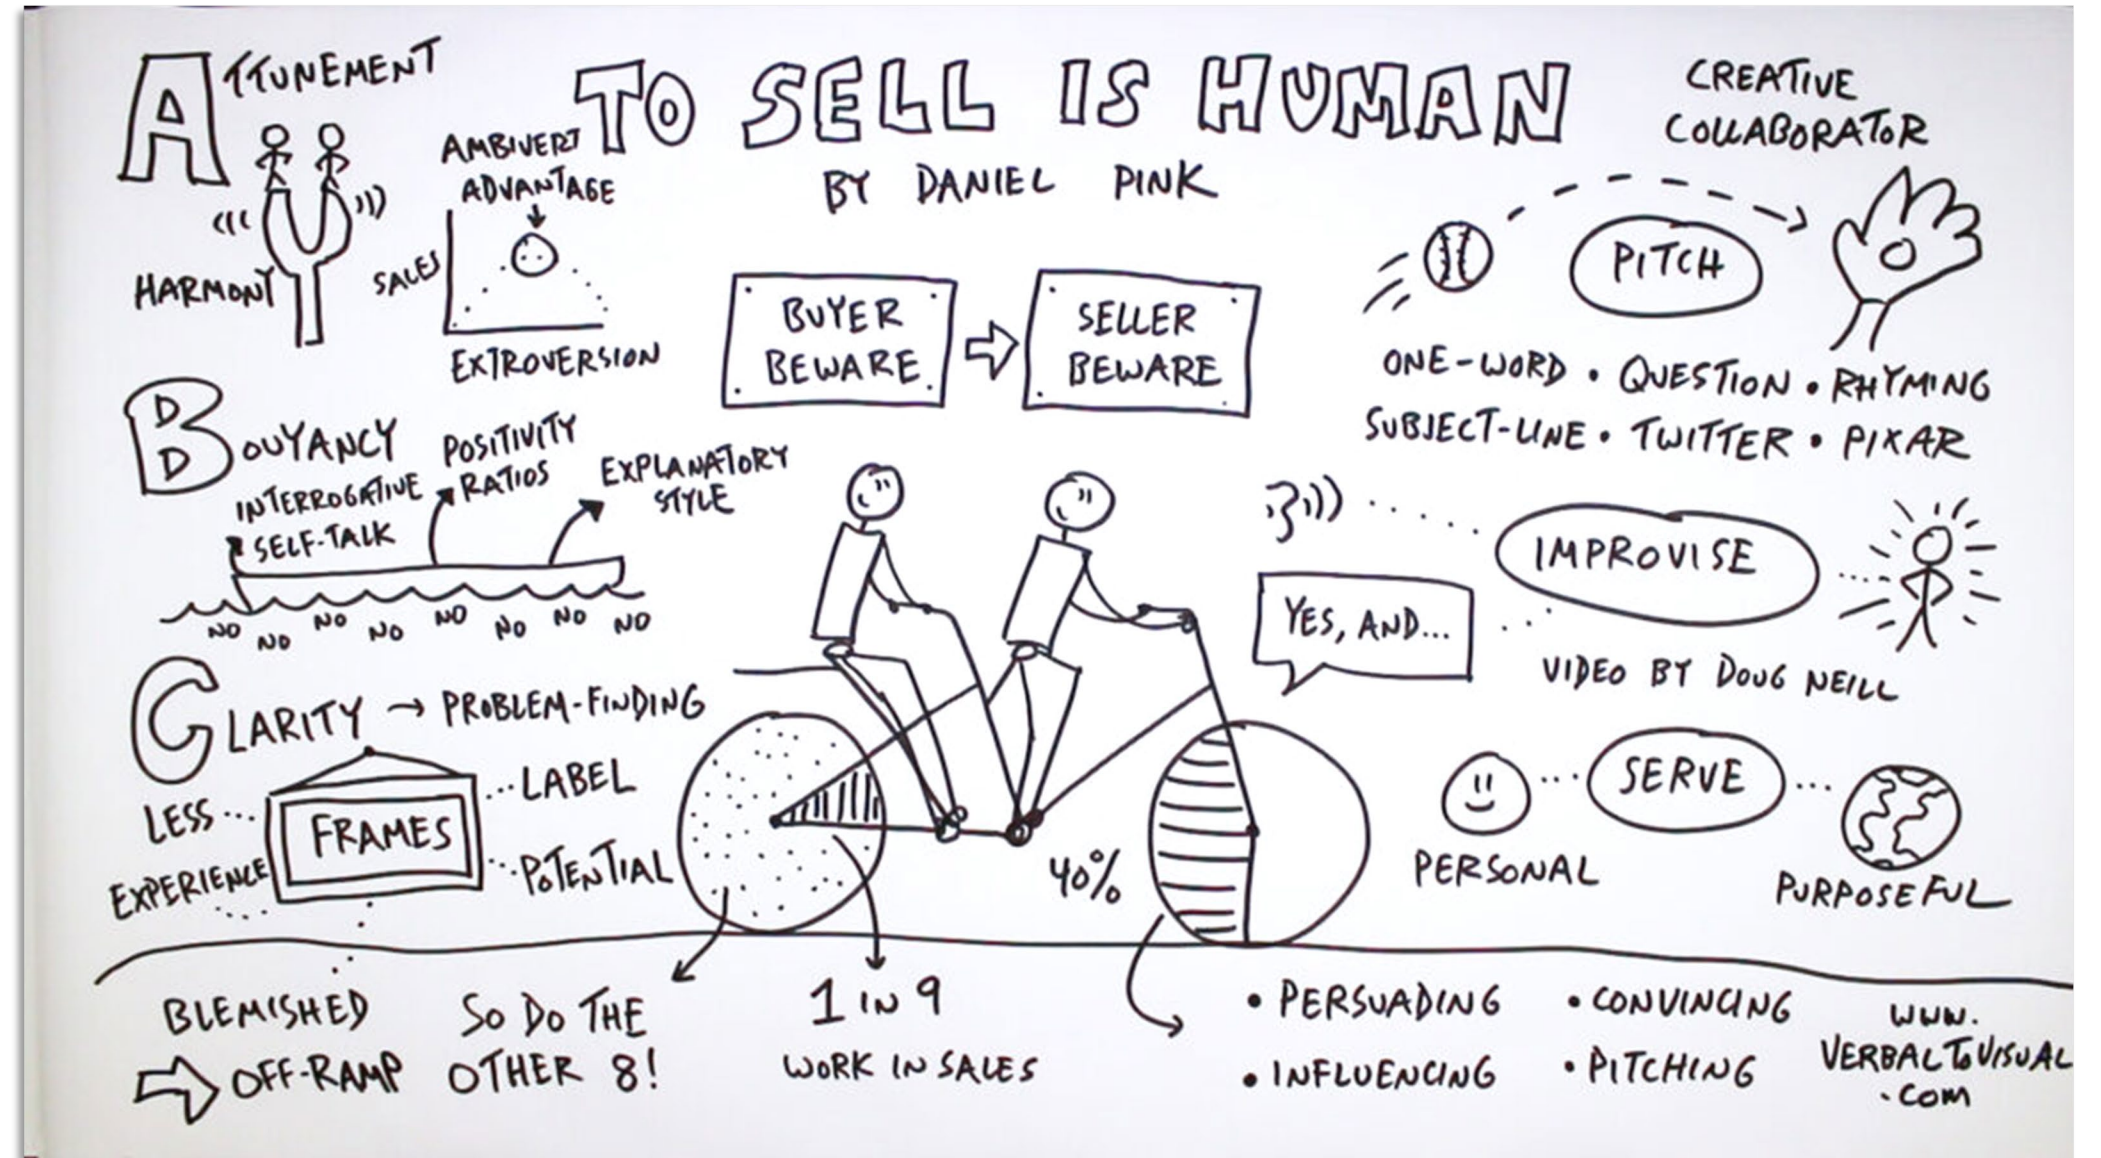 ATTUNEMENT
HARMONY
AMBIVERT
ADVANTAGE
SALES
EXTROVERSION
TO SELL IS HUMAN
BY DANIEL PINK
BUYER
BEWARE
SELLER
BEWARE
CREATIVE
COLLABORATOR
PITCH
ONE-WORD • QUESTION • RHYMING
SUBJECT-LINE • TWITTER • PIXAR
BOUYANCY
INTERROGATIVE
SELF-TALK
POSITIVITY
RATIOS
EXPLANATORY
STYLE
NO NO NO NO NO NO NO NO
IMPROVISE
YES, AND...
VIDEO BY DOUG NEILL
CLARITY → PROBLEM-FINDING
LESS
EXPERIENCE
FRAMES
LABEL
POTENTIAL
40%
SERVE
PERSONAL
PURPOSEFUL
BLEMISHED
OFF-RAMP
SO DO THE
OTHER 8!
1 IN 9
WORK IN SALES
• PERSUADING
• INFLUENCING
• CONVINCING
• PITCHING
WWW.
VERBALTOVISUAL
.COM